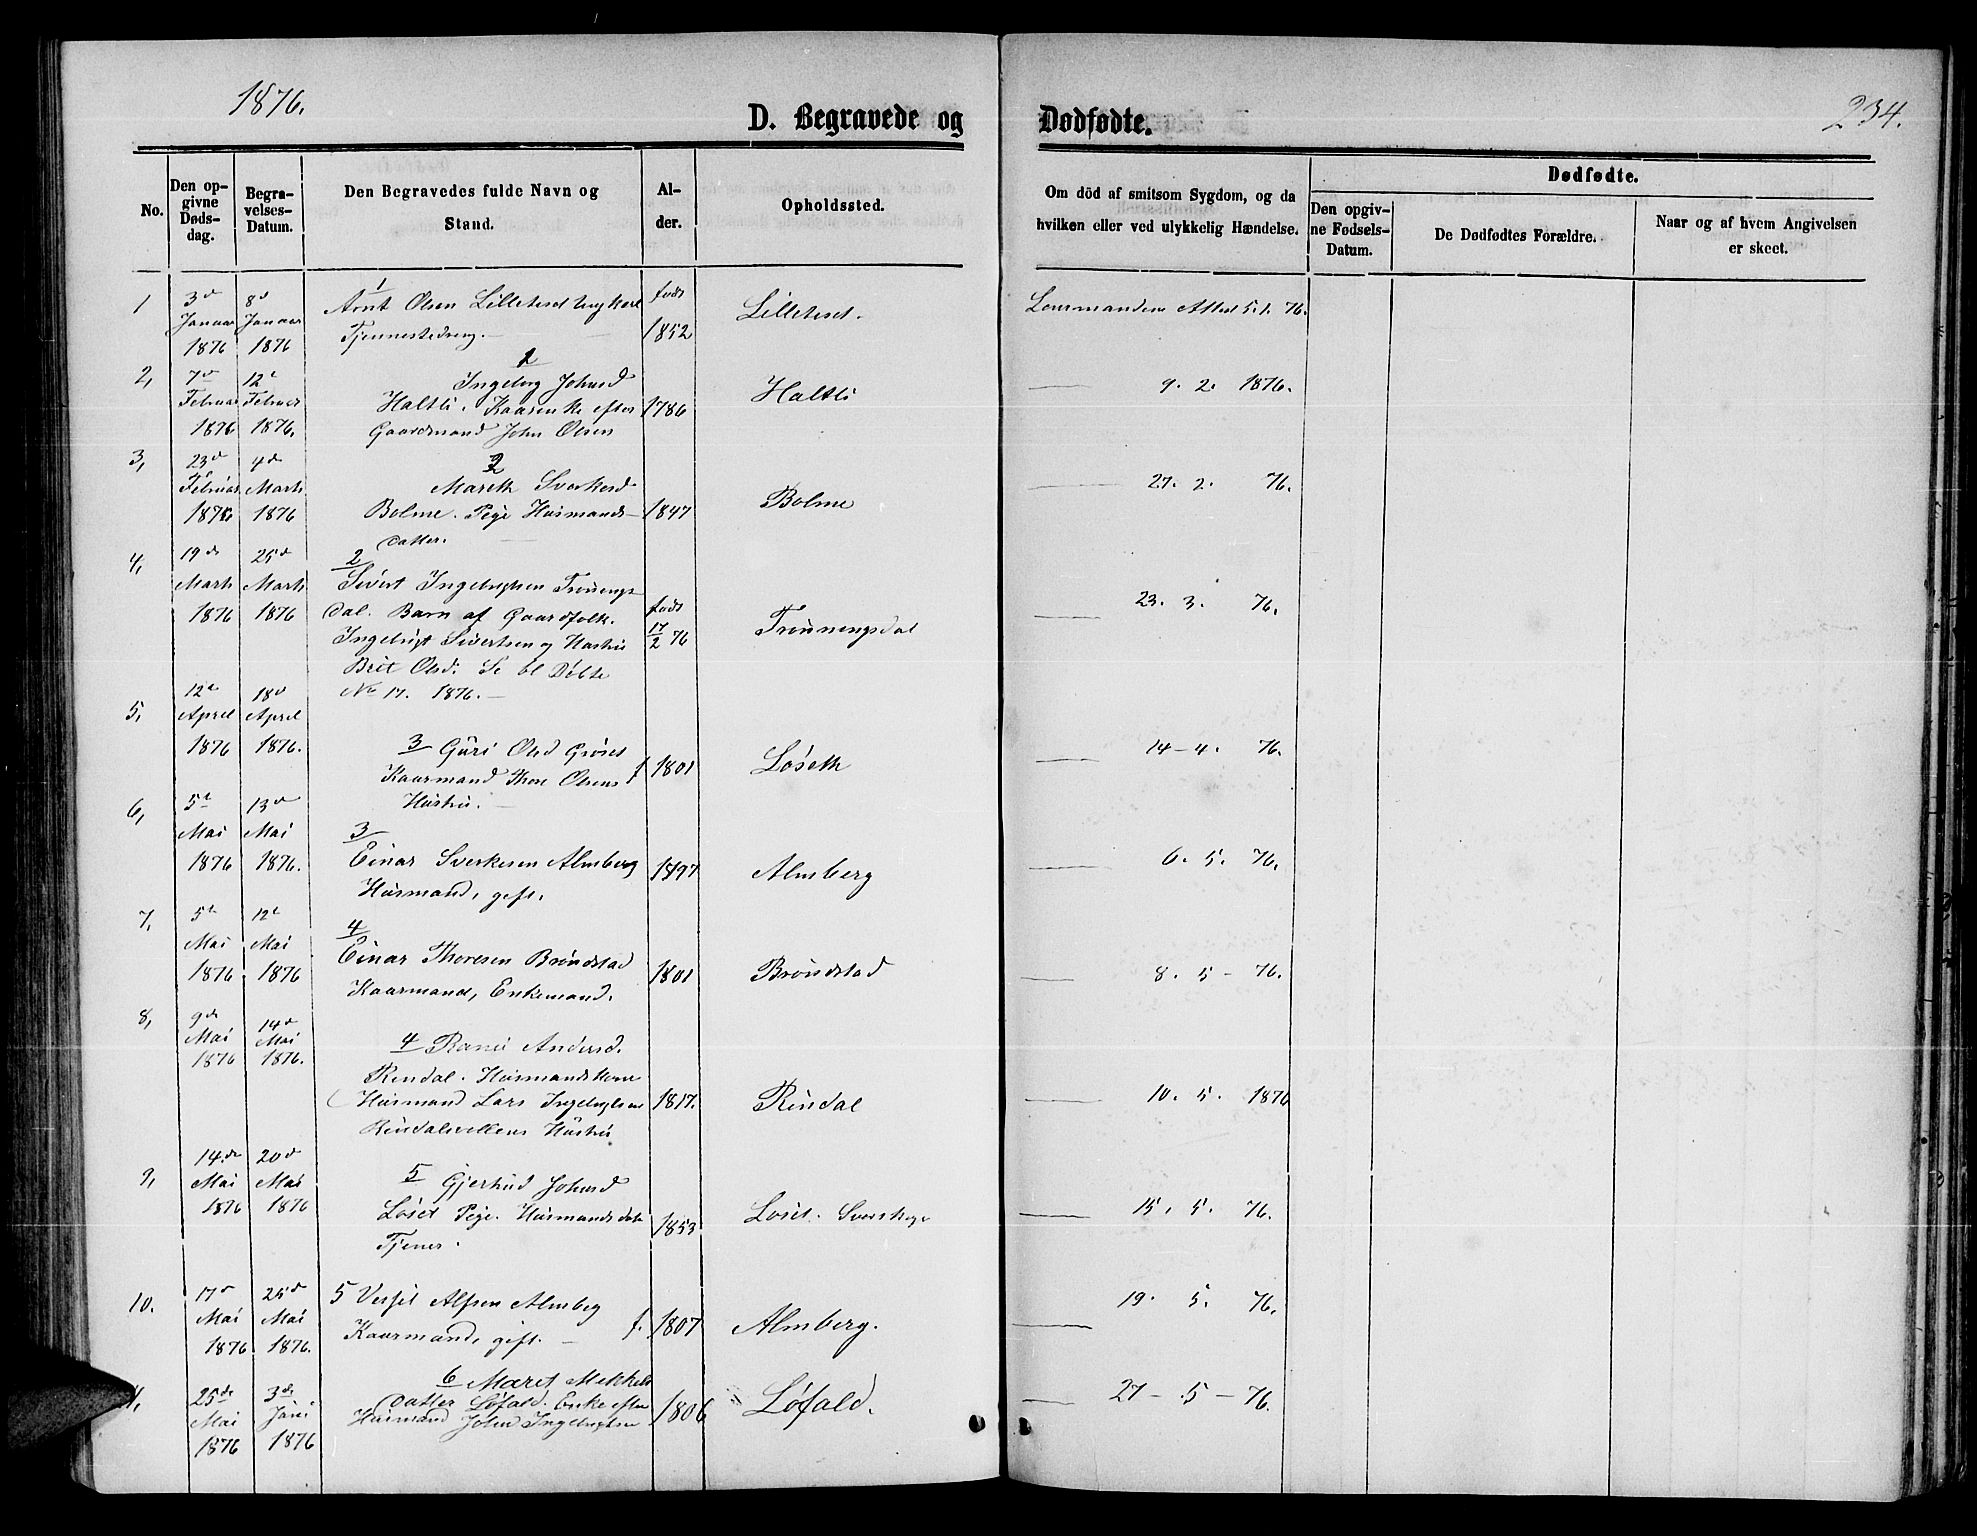 1876.
D. Begravede og Dødfødte.
234.
No.
Den opgivne Dødsdag.
Begravelses-Datum.
Den Begravedes fulde Navn og Stand.
Alder.
Opholdssted.
Om död af smitsom Sygdom, og da hvilken eller ved ulykkelig Hændelse.
Dødfødte.
Den opgivne Fødsels-Datum.
De Dødfødtes Forældre.
Naar og af hvem Angivelsen er skeet.
1
3d Januar 1876
8d Januar 1876
1
Arnt Olsen Lilleteset Ungkarl
Tjennestedreng.
født 1852
Lilleteset.
Lensmandens Attest 5.1. 76.
2,
7d Februar 1876
12t Februar 1876.
1
Ingebrg Johnsd
Haltli. Kaarenke efter
Gaardmand John Olsen
1786
Haltli
9. 2. 1876.
3,
23d Februar 1876
4d Marts 1876
2
Mareth Sverkesd
Bolme. Pige Husmands-
datter.
1847
Bolme
27. 2. 76.
4,
19de Marts 1876
25d Marts 1876
2
Sivert Ingebrigtsen Trønnings
dal. Barn af Gaardfolk.
Ingebrigt Sivertsen og Hustru
Brit Olsd. Se bl Døbte
No 17. 1876.
født 17/2 76
Trønningsdal
23. 3. 76.
5,
12t April 1876
18d April 1876.
3 Guri Olsd Grøset
Kaarmand Thore Olsens
Hustru.
f 1801
Løseth
14 - 4. 76.
6,
5t Mai 1876
13d Mai 1876.
3
Einar Sverkesen Almberg
Husmand, gift.
Almberg
6. 5. 76.
7,
5t Mai 1876
12t Mai 1876
4
Einar Thoresen Brøndstad
Kaarmand, Enkemand.
1801
Brøndstad
8. 5 - 76.
8,
9de Mai 1876
14d Mai 1876.
4 Andersd.
Rindal. Husmandskone
Husmand Lars Ingebrigtsen
Hustru
1817.
Rindal
10. 5. 1876
9,
14.de Mai 1876
20d Mai 1876
5 Gjertrud Johnsd
Løset Pige. Husmandsdatr
Tjener.
1853
Løset.
15. 5. 76.
10.
17d Mai 1876
25d Mai 1876.
5 Alfsen Almberg
Kaarmand, gift.
f. 1807
Almberg.
19. 5. 76.
25de Mai 1876
3de Juni 1876
6 Maret Mekkels
datter Løfald. Enke efter
Husmand John Ingebrigtsen
1806
Løfald.
27 - 5 - 76.